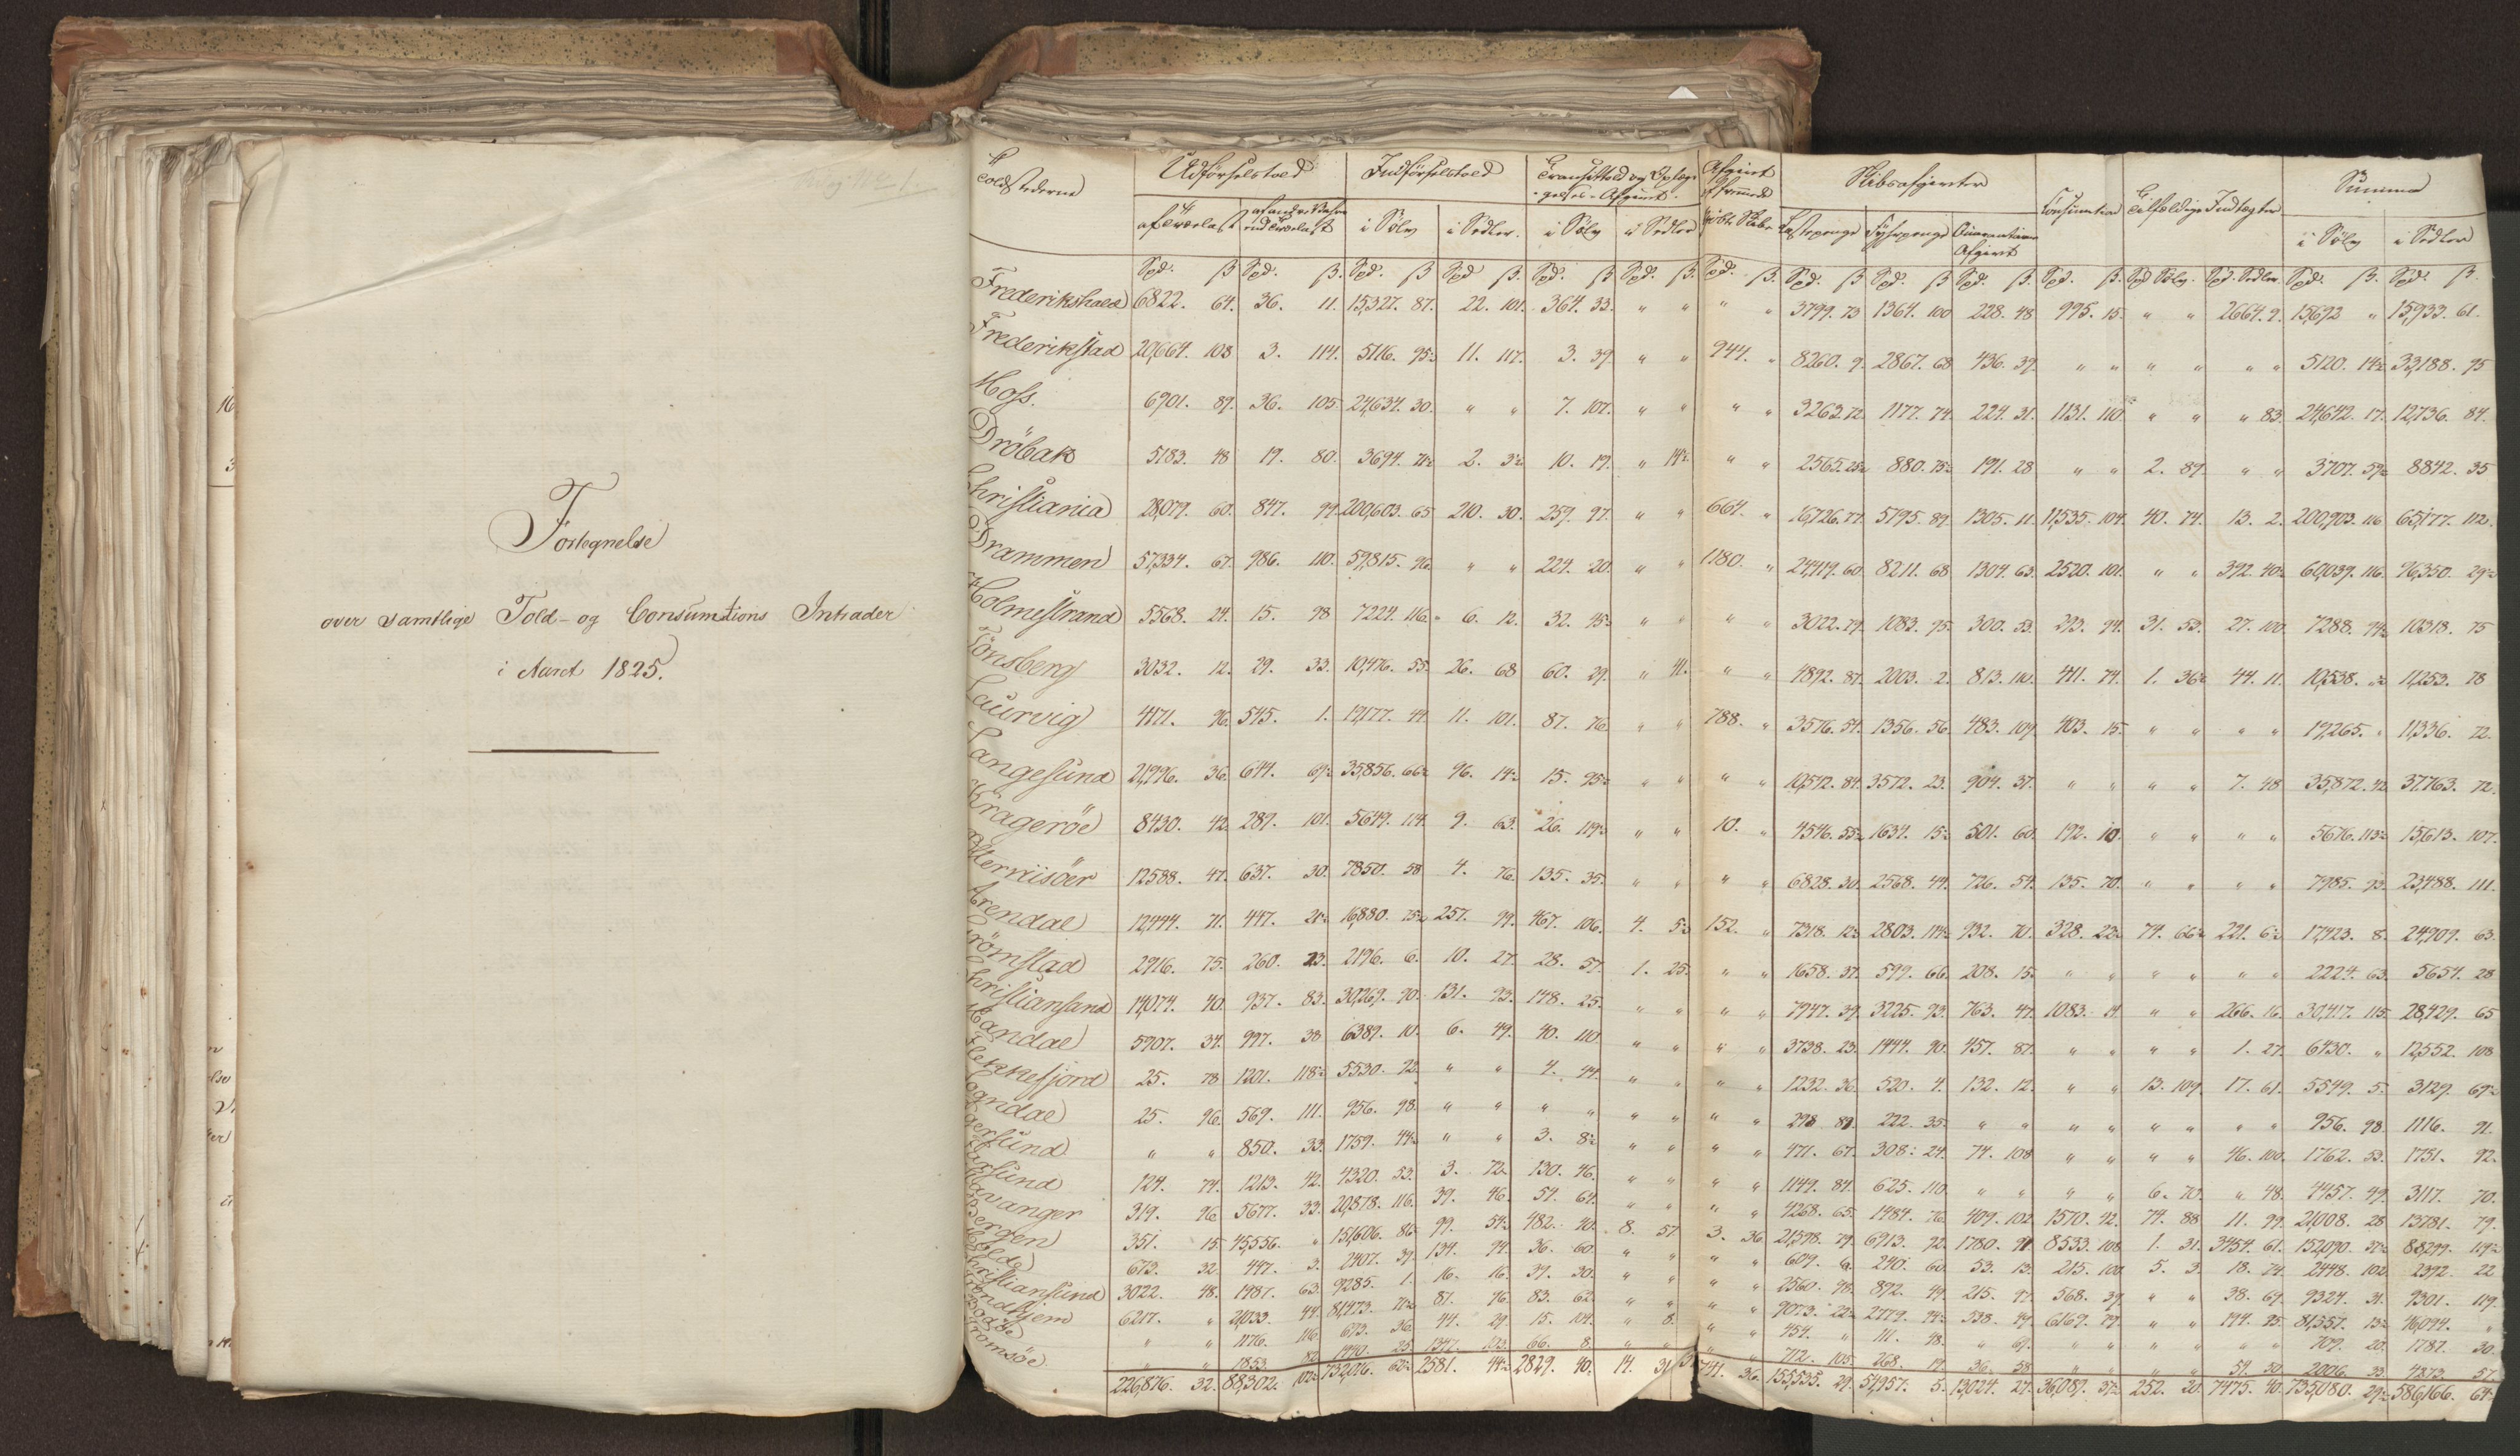 Fortegnelse
over samtlige Told- og Consumtions Intrader
i Aaret 1825.
Toldstederne Udförselstoed Indförselstoed Transittold og Oplags- Afgivt Skibsafgivter Consumtion Tilfældige Indtægter Summa
af Trælast i Sölv i Sedler. i Sölv i Sedler Lastepenge Fyrpenge Quarantaine Afgivt i Sölv i Sedler
Frederikshald 6822. 64. 36. 11. 15,327. 87. 22. 101. 364. 33. " " " " 3799. 73 1364. 100 228. 48 995. 15. " " 2664. 9. 15,692 " 15,933. 61.
Frederikstad 20,664. 108 3. 114. 5116. 95½ 11. 117. 3. 39. " " 944. " 8260. 9. 2867. 68 436. 39. " " " " " " 5120. 14½ 33,188. 95
Moss. 6901. 89. 36. 105. 24,634. 30. " " 7. 107. " " " " 3263. 72. 1177. 74. 224. 31. 1131. 110. " " " 83. 24,642. 17. 12,736. 84.
Dröbak 5183. 48 19. 80. 3694. 2. 10. 19. " " " 2565. 880. 191. 28 " " 2. 89. " " 3707. 59½ 8842. 35
Christiania 28,079. 60. 847. 99. 200,603. 65 210. 30. 259. 97. " " 664. " 16,726. 77. 5795. 89. 1305. 11. 11,535. 104. 40. 74. 13. 2. 200,903. 116 65,177. 112.
Drammen 57,334. 67. 986. 110. 59,815. 96. " " 224. 20. " " 1180. " 24,419. 60. 8211. 68 1304. 63. 2520. 101. " " 392. 40½ 60,039. 116. 96,350. 29½
Holmestrand 5568. 24. 15. 98 7224. 116. 6. 12. 32. 45½ " " " " 3022. 79. 1083. 95. 300. 53. 293. 94. 31. 53. 27. 100. 7288. 94½ 10,318. 75
Tönsberg 3032. 12. 29. 33. 10,476. 55. 26. 68 60. 29. " 41. " " 4892. 87. 2003. 2. 813. 110. 411. 74. 1. 36½ 44. 11. 10,538. 11,253. 78
Laurvig 4171. 96. 545. 1. 19,177. 44. 11. 101. 87. 76. " " 788. " 3576. 54. 1356. 56. 483. 109. 403. 15. " " " " 19,265. " 11,336. 72.
Langesund 21,996. 36. 644. 69½ 35,856. 66½ 96. 14½ 15. 95½ " " " " 10,592. 84. 3572. 23. 904. 37. " " " " 7. 48 35,872. 42 37,763. 72.
Krageröe 8430. 42. 289. 101. 5649. 114. 9. 63. 26. 119½ " " 10. " 4546. 55½ 1634. 15½ 501. 60. 192. 10. " " " " 5676. 113½ 15,613. 107.
Österriisöer 12588. 47. 637. 30. 7850. 58 4. 76. 135. 35. " " " " 6828. 30. 2568. 44. 726. 54. 135. 70. " " " " 7985. 93. 23,488. 111.
Arendal 12,444. 71. 447. 21½ 16,880. 75½ 257. 99. 467. 106. 4. 5½ 152. " 7318. 12½ 2803. 114½ 932. 70. 328. 22½ 74. 66½ 221. 6½ 17,423. 8. 24,909. 63.
Grömstad 2916. 75. 260. 23. 2196. 6. 10. 27. 28. 57. 1. 25. " " 1658. 37. 599. 66. 208. 15. " " " " " " 2224. 63. 5654. 28
Christiansand 14,074. 40. 937. 83. 30,269. 90. 131. 93. 148. 25. " " " " 7947. 39. 3225. 93. 763. 47. 1083. 14. " " 266. 16. 30,417. 115. 28,429. 65
Mandal 5907. 34. 997. 38 6389. 10. 6. 49. 40. 110. " " " " 3738. 23. 1444. 90. 457. 87. " " " " 1. 27. 6430. " 12,552. 108
Flekkefjord 25. 78 1201. 118½ 5530. 72. " " 4. 44. " " " " 1232. 36. 520. 4. 132. 12. " " 13. 109. 17. 61. 5549. 5. 3129. 69½
Sogndal 25. 96. 569. 111. 956. 98. " " " " " " " " 298 89. 222. 35. " " " " " " " " 956. 98. 1116. 91.
Egersund " " 850. 33. 1759. 44½ " " 3. 8½ " " " " 471. 67. 308. 24. 74. 108 " " " " 46. 100. 1762. 53. 1751. 92.
124. 74. 1213. 42. 4320. 53. 3. 72. 130. 46. " " " " 1149. 84. 625. 110. " " " " 6. 70. " 48. 4457. 49. 3117. 70.
Stavanger 319. 96. 5677. 33. 20,878. 116. 39. 46. 54. 64. " " " " 4268. 65. 1484. 76. 409. 102. 1570. 42. 74. 88 11. 99. 21,008. 28 13,781. 79.
Bergen 351. 15. 45,556. " 151,606. 86. 99. 54½ 482. 40. 8. 57. 3. 36 21,598. 79. 6913. 92. 1780. 8533. 108 1. 31. 3454. 61. 152,090. 37½ 88,299. 119½
Molde 673. 32. 447. 3. 2407. 39. 134. 94. 36. 60. " " " " 609. 240. 60. 53. 13. 215. 100. 5. 3. 18. 74. 2448. 102. 2392. 22
Christiansund 3022. 48. 1987. 63. 9285. 1. 16. 16. 39. 30. " " " " 2560. 98. 892. 44. 215. 97. 368. 39. " " 38. 69. 9324. 31. 9301. 119.
Trondhjem 6217. " 21,033. 44. 81,473. 71½ 87. 76. 83. 62. " " " " 9073. 22½ 2779. 94½ 538. 49. 6169. 79. " " 194. 95. 81,557. 13½ 46,094. "
Bodöe " " 1176. 116. 693. 36. 44. 29. 15. 104. " 8. " " 454. " 111. 48. " 69. " " " " " " 709. 20. 1787. 30.
Tromsöe " " 1853. 82. 1940. 25. 1347. 103. 66. 8. " " " " 712. 105. 268. 19. 36. 58 " " " " 54. 30. 2006. 33. 4273. 57.
226,876. 32. 88,302. 102½ 732,016. 62½ 2581. 44½ 2829. 40. 14. 31. 741. 36. 155,535. 29. 54,957. 5. 13,024. 27. 36,089. 37½ 252. 20. 7475. 40. 735,080. 29½ 586,166. 64½